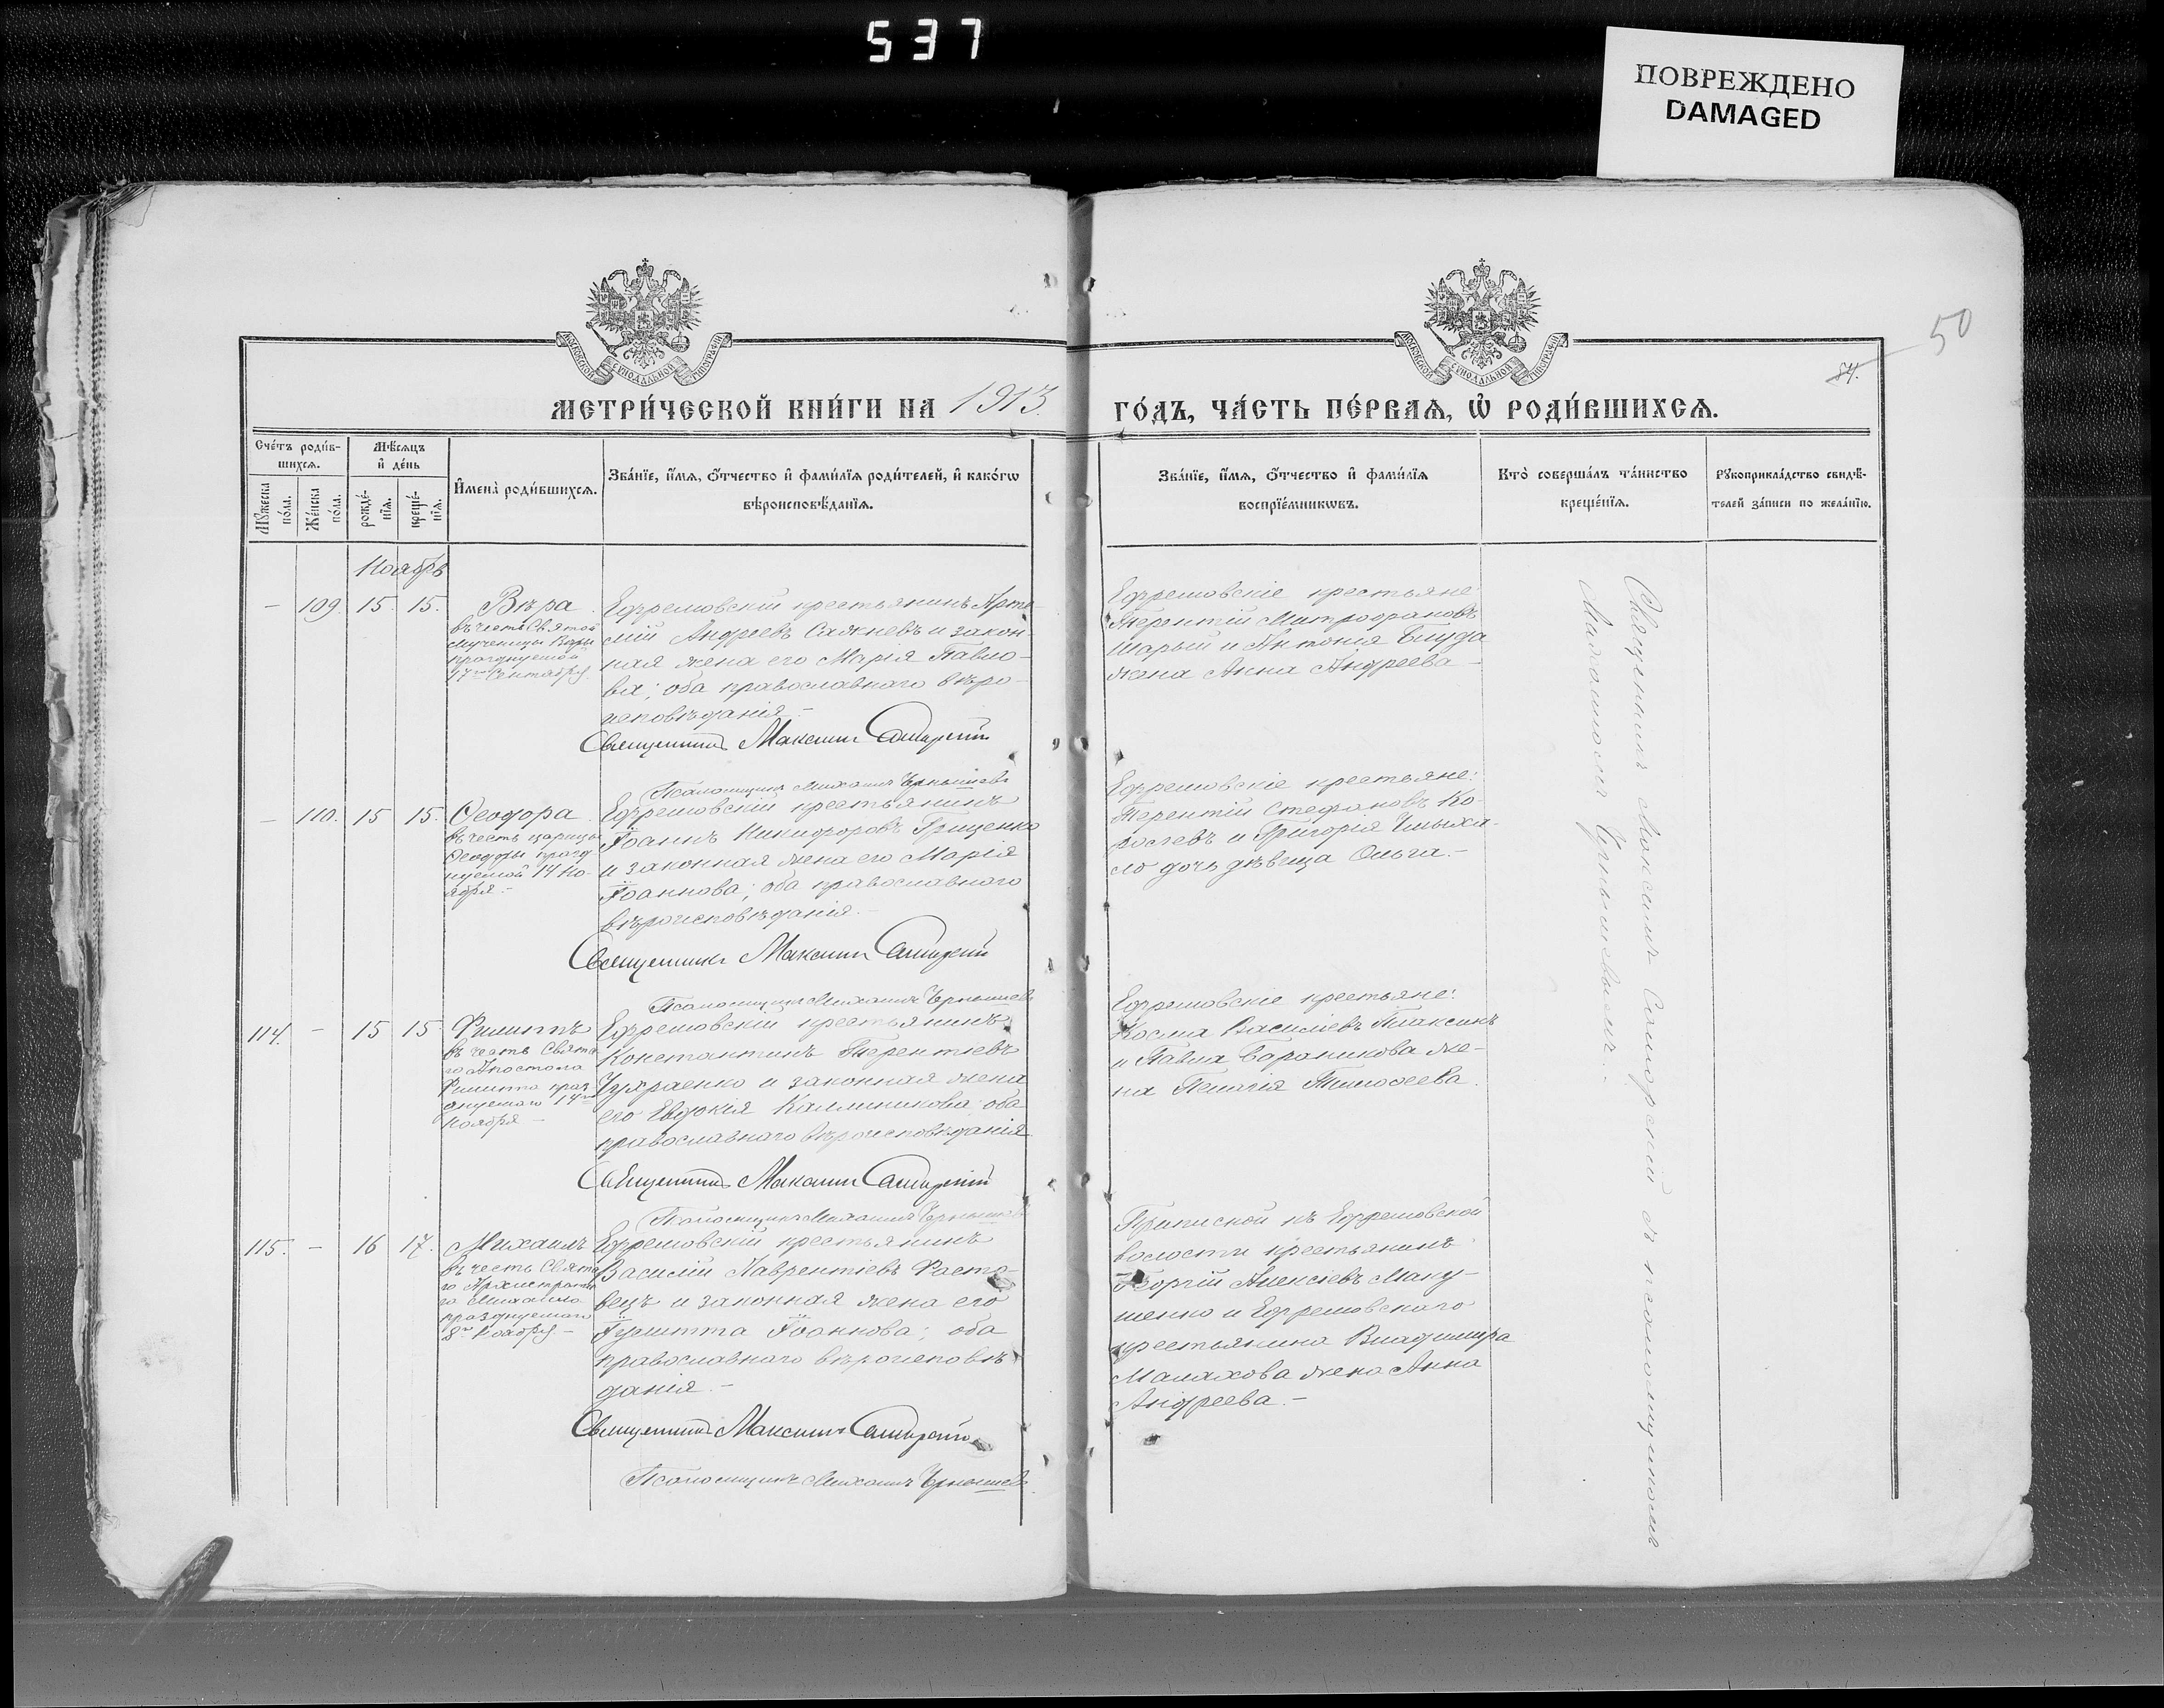 537
ПОВРЕЖДЕНО
DAMAGED
50
84.
МЕТРИ́ЧЕСКОЙ КНИ́ГИ НА 1913.
ГО́ДЪ, ЧА́СТЬ ПЕ́РВАѦ, Ѡ҆ РОДИ́ВШИХСѦ.
Сче́тъ роди́в-
шихсѧ.
Мѣ́сѧцъ
и҆ де́нь
Мꙋ́жеска
по́ла.
Же́нска
по́ла.
рожде́-
нїѧ.
креще́-
нїѧ.
И҆мена̀ роди́вшихсѧ.
Зва́нїе, и҆́мѧ, ѻ҆́тчество и҆ фами́лїѧ роди́телей, и҆ како́гѡ
вѣроисповѣ́данїѧ.
Зва́нїе, и҆́мѧ, ѻ҆́тчество и҆ фами́лїѧ
воспрїе́мникѡвъ.
Кто̀ соверша́лъ та́инство
креще́нїѧ.
Рꙋкоприкла́дство свидѣ́-
телей за́писи по жела́нїю.
Ноябрь
– 109. 15. 15.
Вѣра
въ честь Святой
мученицы Вѣры
празднуемой
17го Сентября.
Ефремовскій крестьянинъ Арте-
мій Андреевъ Сажневъ и закон-
ная жена его Марія Павло-
ва; оба православнаго вѣро-
исповѣданія.–
Священникъ Максимъ Самарскій
Псаломщикъ Михаилъ Чернышевъ
Ефремовскіе крестьяне
Терентій Митрофановъ
Шарый и Антонія Блуда
жена Анна Андреева –
– 110. 15 15.
Ѳеодора
въ честь царицы
Ѳеодоры празд
нуемой 14 Но-
ября.–
Ефремовскій крестьянинъ
Іоаннъ Никифоровъ Гриценко
и законная жена его Марія
Іоаннова; оба православнаго
вѣроисповѣданія.–
Священникъ Максимъ Самарскій
Псаломщикъ Михаилъ Чернышевъ
Ефремовскіе крестьяне:
Терентій Стефановъ Ко-
ролевъ и Григорія
дочь дѣвица Ольга.–
114. – 15 15
Филиппъ
въ честь Свята
го Апостола
Филиппа праз
днуемаго 14го
Ноября –
Ефремовскій крестьянинъ
Константинъ Терентіевъ
и законная жена
его Евдокія Каллиникова; оба
православнаго вѣроисповѣданія
Священникъ Максимъ Самарскій
Псаломщикъ Михаилъ Чернышевъ
Ефремовскіе крестьяне:
Косма Василіевъ Плаксинъ
и Павла Бараникова же-
на Пелагія Тимоѳеева.
115. – 16 17.
Михаилъ
въ честь Свята
го Архистрати
га Михаила
празднуемаго
8го Ноября –
Ефремовскій крестьянинъ
Василій Лаврентіевъ Расто-
вецъ и законная жена его
Іулитта Іоаннова; оба
православнаго вѣроисповѣ
данія.–
Священникъ Максимъ Самарскій
Псаломщикъ Михаилъ Чернышевъ
Приписной къ Ефремовской
волости крестьянинъ
Георгій Алексіевъ Маку-
шенко и Ефремовскаго
крестьянина Владимира
Малахова жена Анна
Андреева.–
Священникъ Максимъ Самарскій съ псаломщикомъ
Михаиломъ Чернышевымъ.